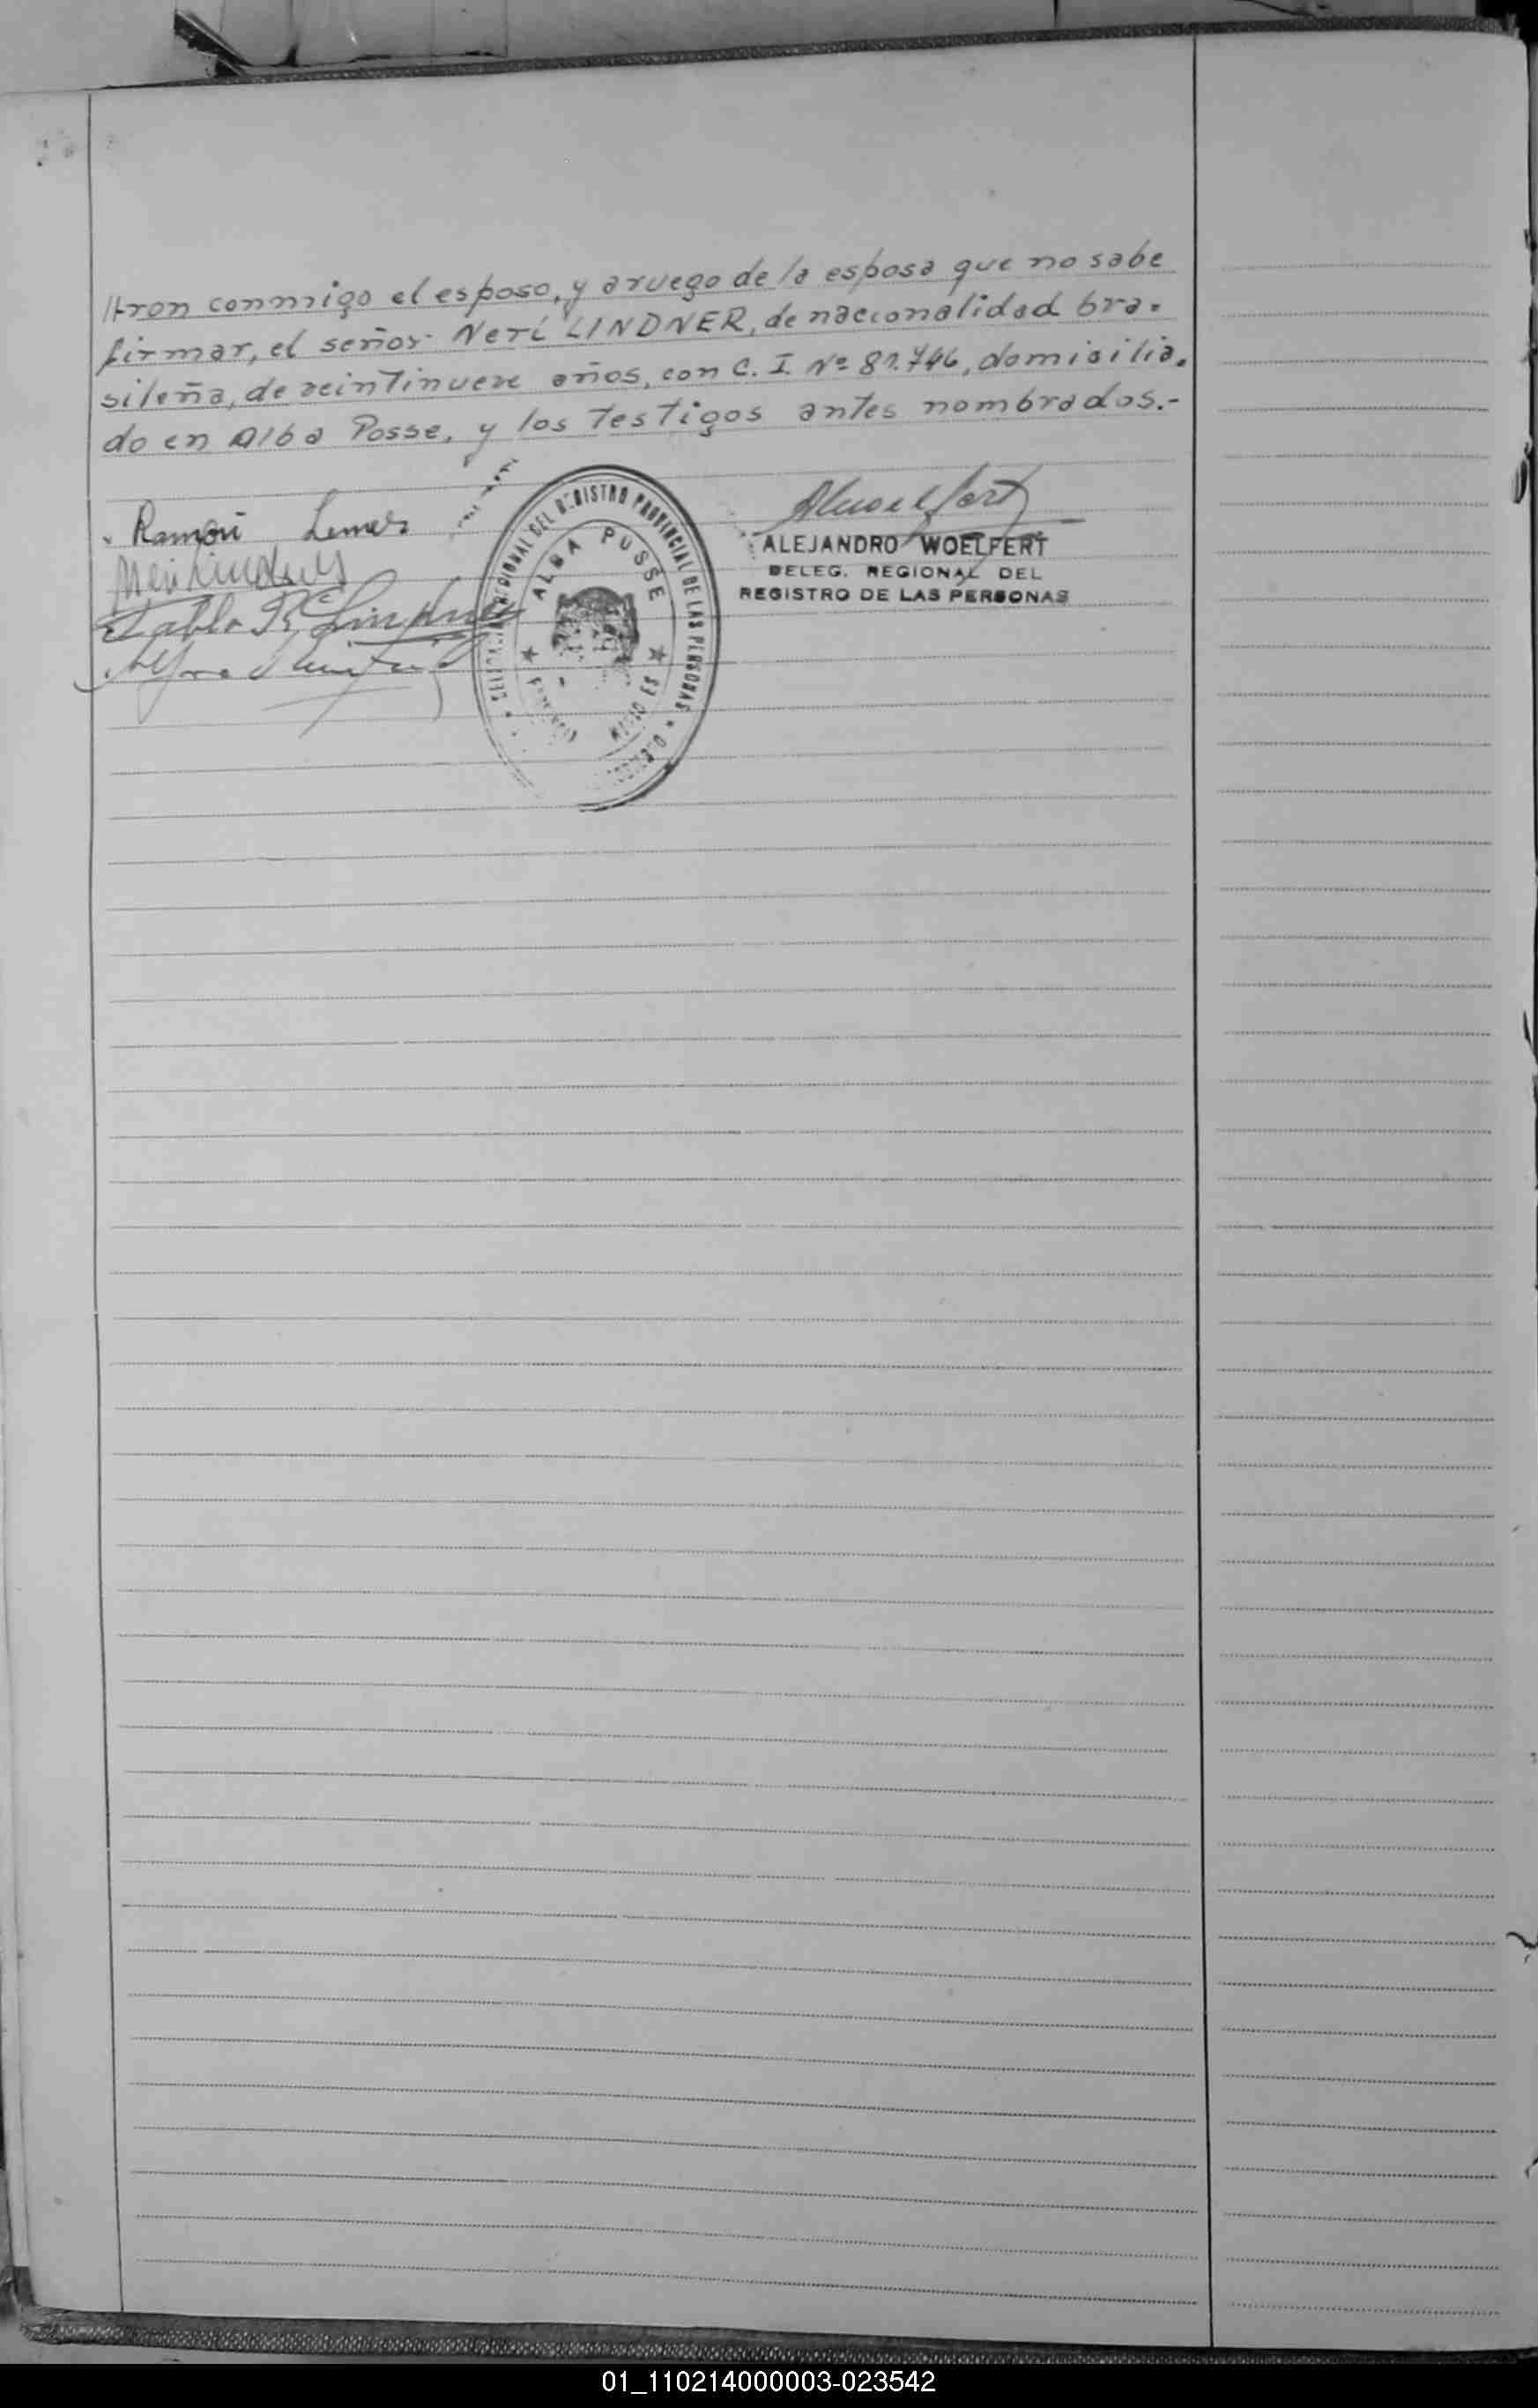 tron conmigo el esposo, y aruego de la esposa que no sabe
firmar, el señor Neri LINDNER, de nacionalidad bra-
sileña, de veintinueve años, con C. I. Nº 81.746, domicilia-
do en Alba Posse, y los testigos antes nombrados.-
Ramón Lemes
Neri Lindner
Pablo R. Lindner
REGIONAL DEL REGISTRO PROVINCIAL DE LAS PERSONAS
ALBA POSSE
MISIONES
ALEJANDRO WOELFERT
DELEG. REGIONAL DEL
REGISTRO DE LAS PERSONAS
01_110214000003-023542